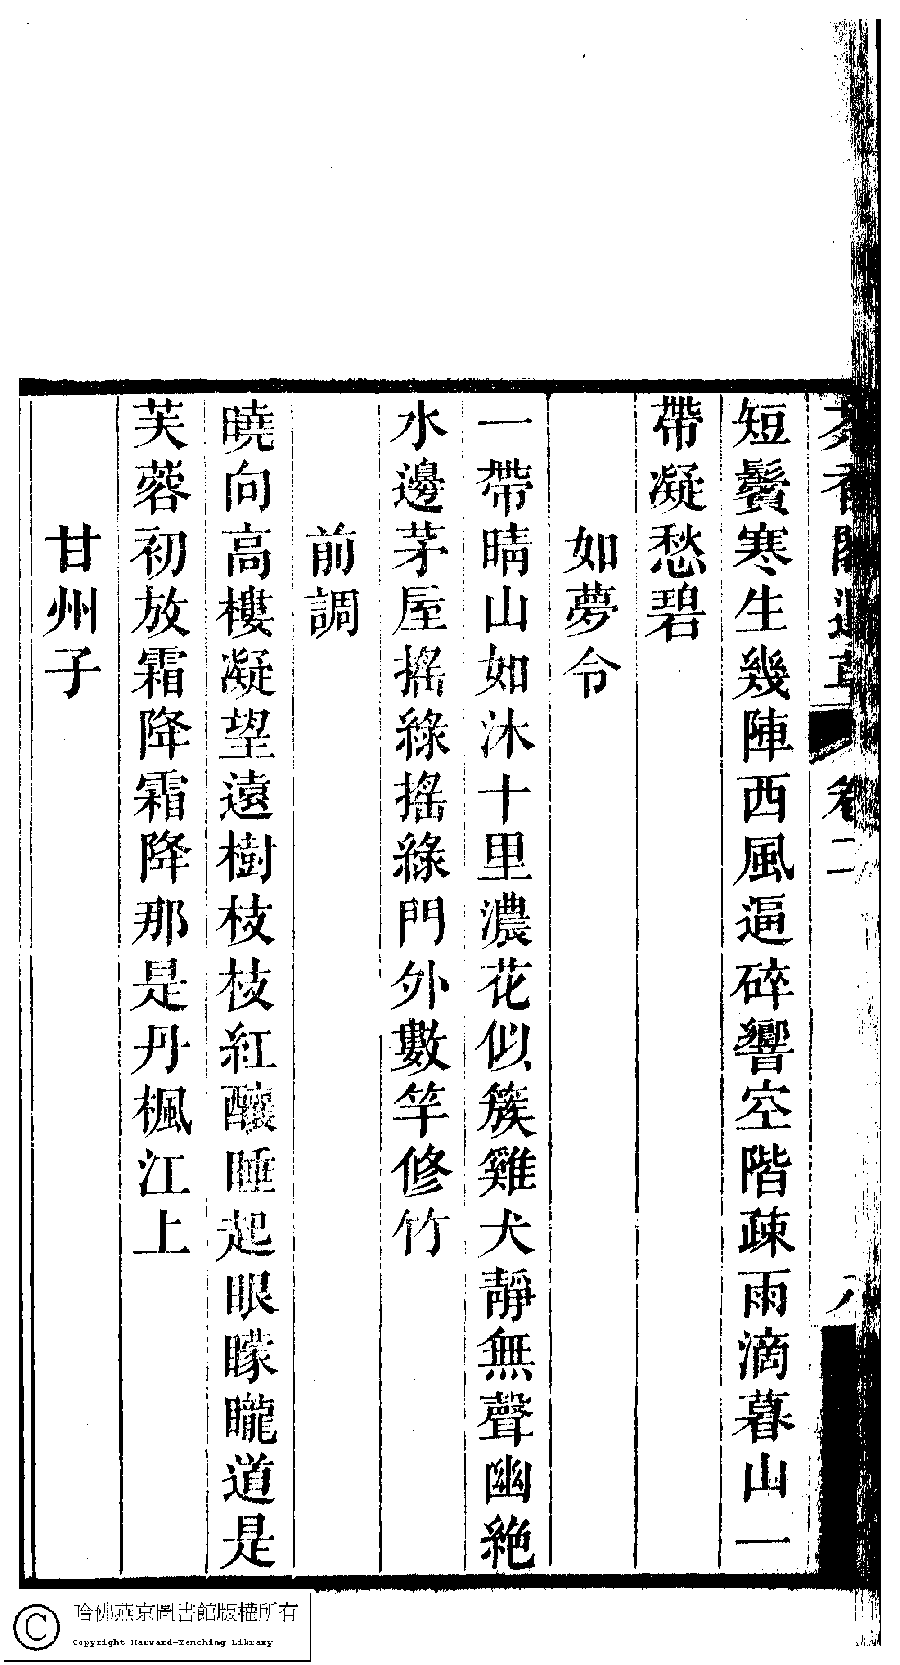 香閣遺草 卷二 八
短鬢寒生幾陣西風逼碎響空階疎雨滴暮山一
帶凝愁碧
如夢令
一帶晴山如沐十里濃花似簇雞犬靜無聲幽絶
水邊茅屋搖綠搖綠門外數竿修竹
前調
曉向高樓凝望遠樹枝枝紅釀睡起眼矇矓道是
芙蓉初放霜降霜降那是丹楓江上
甘州子
哈佛燕京圖書館版權所有
Copyright Harvard-Yenching Library